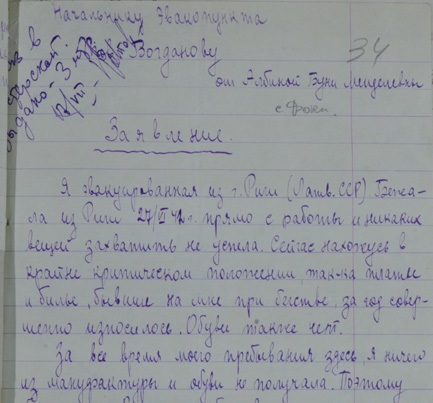 Начальнику Эвакопункта
Богданову
34
от Альбиной Буни Менделевны
с. Фоки.
выдано - 3 мтр
Заявление.
Я эвакуированная из г. Риги (Латв. ССР) Бежа-
ла из Риги 27/VI 42 г. прямо с работы и никаких
вещей захватить не успела. Сейчас нахожусь в
крайне критическом положении, так-ка платье
и билье, бывшие на мне при бегстве, за год совер-
шенно износилось. Обуви также нет.
За все время моего пребывания здесь, я ничего
из мануфактуры и обуви не получала. Поэтому